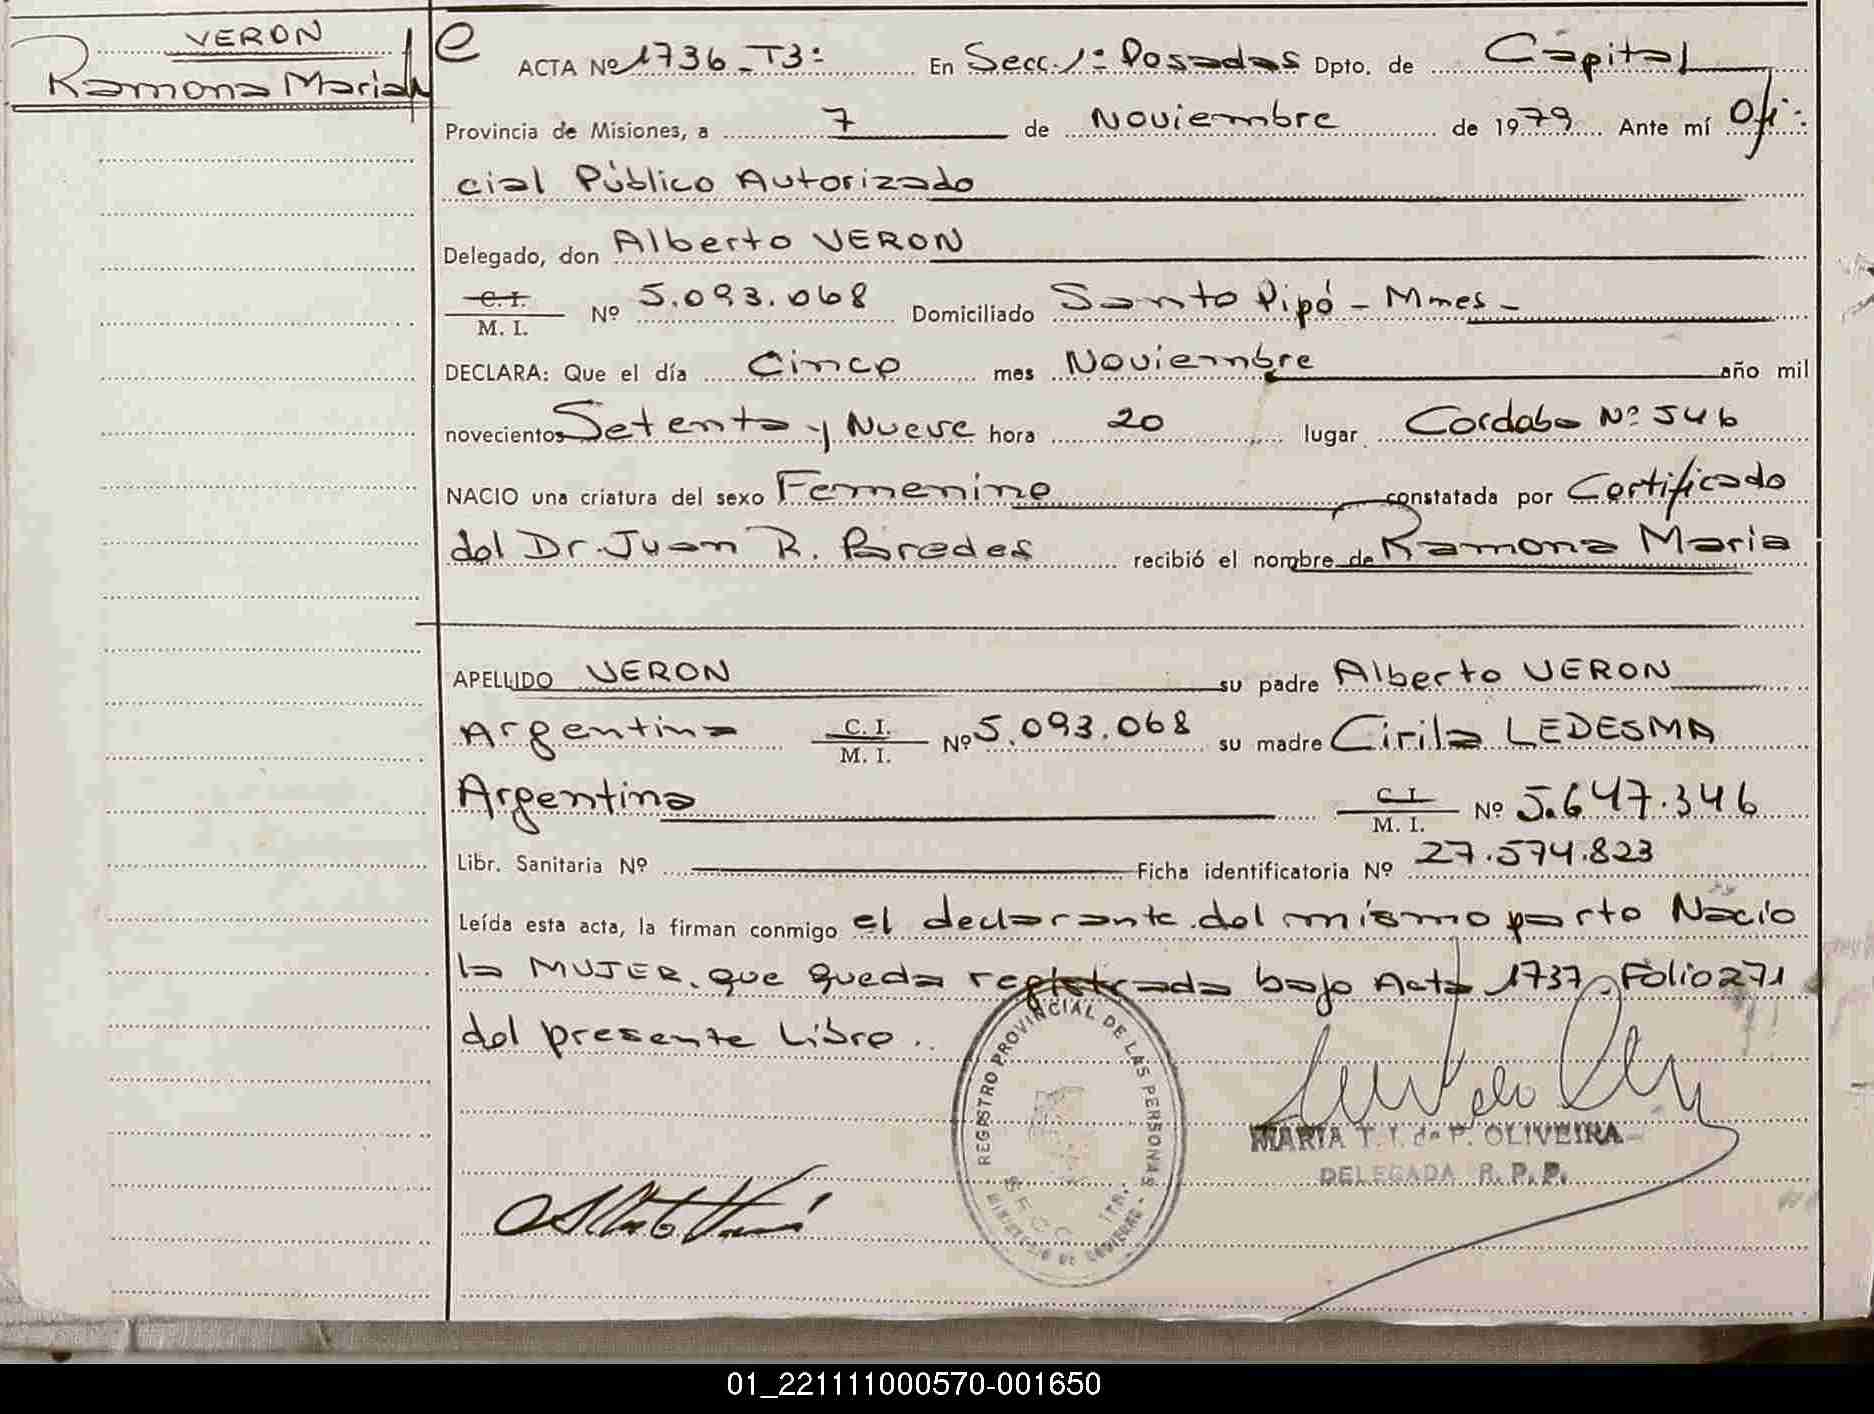 VERON
Ramona Maria
e ACTA Nº 1736_T3: En Secc. 1ª Posadas Dpto. de Capital
Provincia de Misiones, a 7 de Noviembre de 1979 Ante mí Ofi-
cial Público Autorizado
Delegado, don Alberto VERON
C. I.
M. I. Nº 5.093.068 Domiciliado Santo Pipó - Mnes -
DECLARA: Que el día Cinco mes Noviembre año mil
novecientos Setenta y Nueve hora 20 lugar Cordoba Nº 546
NACIO una criatura del sexo Femenino constatada por Certificado
del Dr. Juan R. Paredes recibió el nombre de Ramona Maria
APELLIDO VERON su padre Alberto VERON
Argentino C. I.
M. I. Nº 5.093.068 su madre Cirila LEDESMA
Argentina C. I.
M. I. Nº 5.647.346
Libr. Sanitaria Nº Ficha identificatoria Nº 27.574.823
Leída esta acta, la firman conmigo el declarante. del mismo parto Nacio
la MUJER. que queda registrada bajo Acta 1737, Folio 271
del presente Libro.
REGISTRO PROVINCIAL DE LAS PERSONAS
SECC. 1RA.
MINISTERIO DE GOBIERNO
MARIA T. I. de P. OLIVEIRA
DELEGADA R. P. P.
01_221111000570-001650